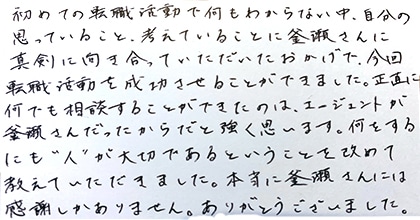 初めての転職活動で何もわからない中、自分の
思っていること、考えていることに釜瀬さんに
真剣に向き合っていただいたおかげで、今回
転職活動を成功させることができました。正直に
何でも相談することができたのは、エージェントが
釜瀬さんだったからだと強く思います。何をする
にも"人"が大切であるということを改めて
教えていただきました。本当に釜瀬さんには
感謝しかありません。ありがとうございました。